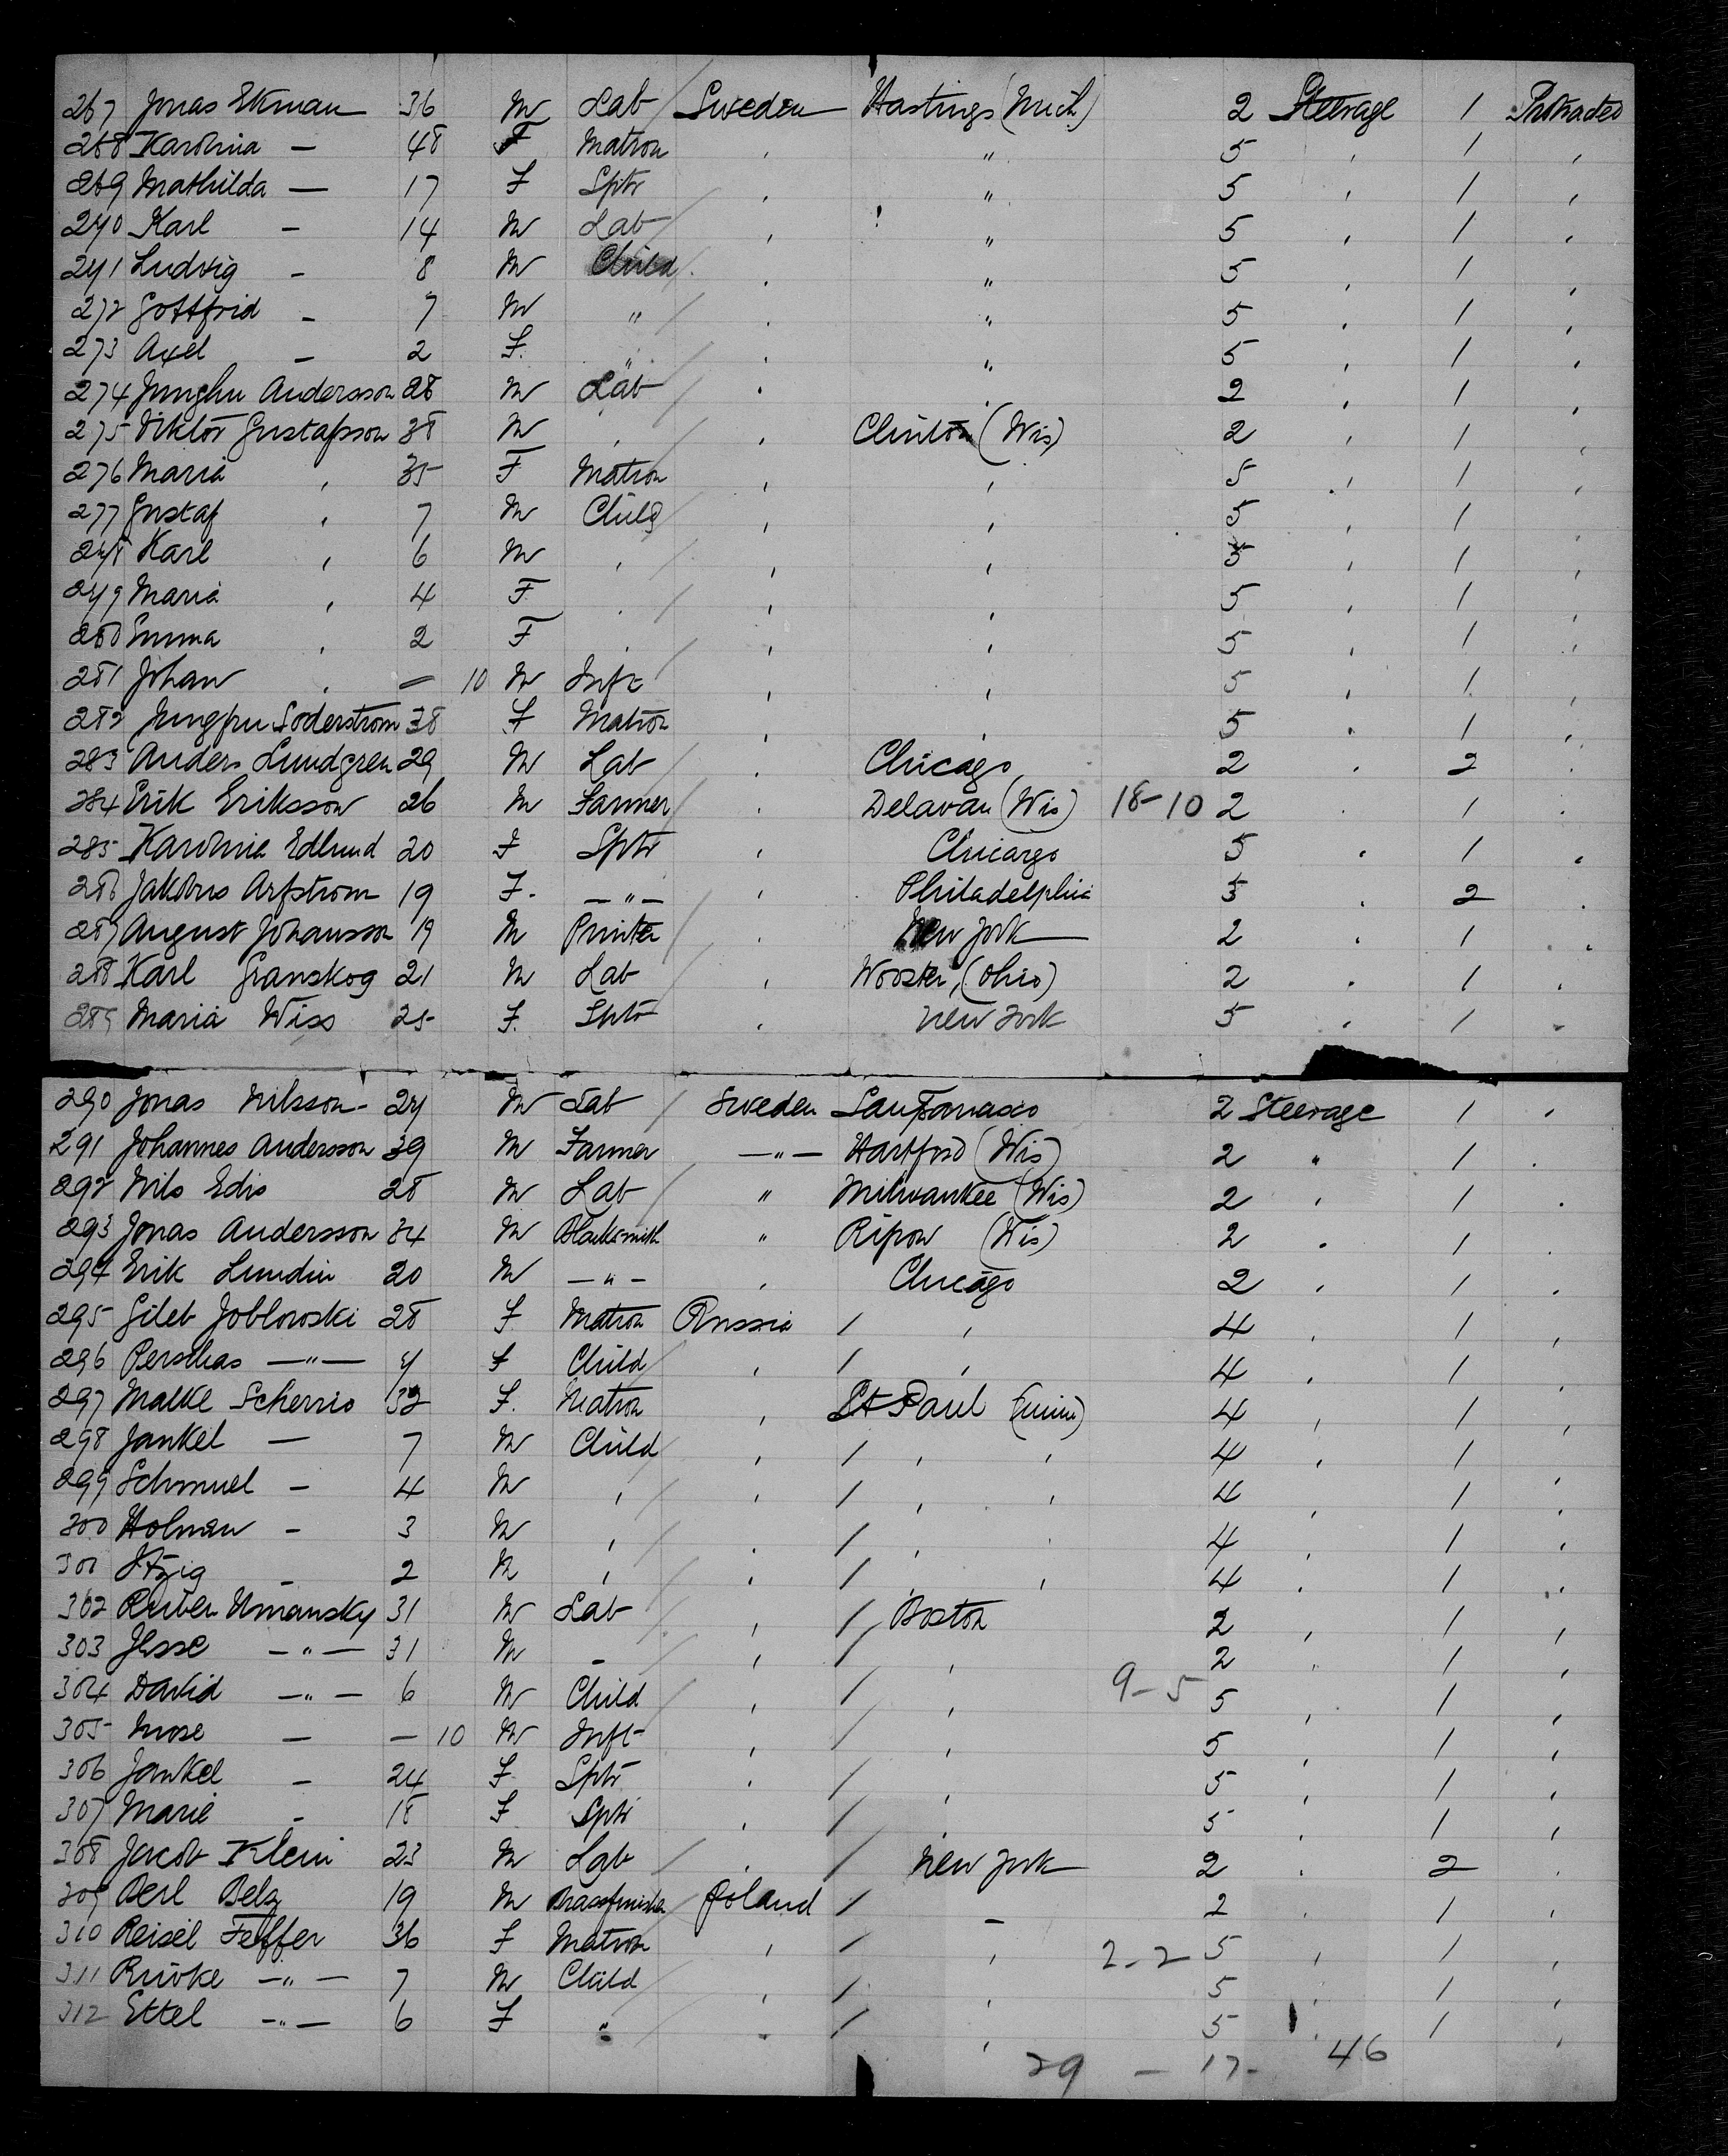 267 Jonas Ekman 36 M Lab Sweden Hastings (Mich) 2 Steerage 1 Protracted
268 Karolina — 48 F Matron , " 5 , 1 ,
269 Mathilda — 17 F Sptr , " 5 , 1 ,
270 Karl - 14 M Lab , " 5 , 1 ,
271 Ludvig - 8 M Child . " 5 , 1 ,
272 Gottfrid - 7 M " . " 5 , 1 ,
273 Axel - 2 F. " . " 5 , 1 ,
274 Andersson 28 M Lab . . 2 , 1 ,
275 Viktor Gustafsson 38 M , . Clinton (Wis) 2 , 1 ,
276 Maria , 35 F Matron , , 5 , 1 ,
277 Gustaf , 7 M Child , , 5 , 1 ,
278 Karl , 6 M , , , 5 , 1 ,
279 Maria , 4 F . , , 5 , 1 ,
280 Emma , 2 F . , , 5 , 1 ,
281 Johan , — 10 M Inft , , 5 , 1 ,
282 Jungfru Soderstrom 38 F Matron , , 5 . 1 ,
283 Anders Lundgren 29 M Lab . Chicago 2 . 2 .
284 Erik Eriksson 26 M Farmer . Delavan (Wis) 18-10 2 . 1 .
285 Karolina Edlund 20 F Sptr , Chicargo 5 . 1 .
286 Arfstrom 19 F. — " — , Philadelphia 5 . 2 .
287 August Johansson 19 M Printer . New York 2 . 1 .
288 Karl Granskog 21 M Lab , Wooster, (Ohio) 2 . 1 .
289 Maria Wiss 25 F. Sptr . New York 5 . 1 .
290 Jonas Nilsson - 27 M Lab Sweden 2 Steerage 1 .
291 Johannes Andersson 39 M Farmer — " — Hartford (Wis) 2 " 1 .
292 Nils Edis 28 M Lab " Milwaukee (Wis) 2 , 1 .
293 Jonas Andersson 34 M Blacksmith " Ripon (Wis) 2 . 1 .
294 Erik Lundin 20 M — " — , Chicago 2 , 1 .
295 Joblowski 28 F Matron Russia / , 4 , 1 ,
296 — " — 4 F Child , / , 4 . 1 ,
297 Malke Scherrio 32 F. Matron , St Paul (Minn) 4 , 1 ,
298 Jankel — 7 M Child , / , , 4 , 1 ,
299 Schmuel - 4 M , , / , , 4 , 1 ,
300 Holman - 3 M , . / , , 4 , 1 ,
301 Itzig - 2 M , . / , , 4 . 1 .
302 Ruben Umansky 31 M Lab , / Boston 2 , 1 ,
303 Jesse — " — 31 M - , / , 2 , 1 ,
304 David — " — 6 M Child , / , 9-5 5 , 1 ,
305 Mose — — 10 M Inft , / , 5 , 1 ,
306 Jankel - 24 F Sptr . / , 5 , 1 ,
307 Marie - 18 F Sptr , / , 5 . 1 ,
308 Jacob Klein 23 M Lab . / New York 2 . 2 .
309 Berl Belz 19 M Brassfinisher Poland / - 2 . 1 ,
310 Reisel Feffer 36 F Matron , / , 2-2 5 , 1 ,
311 Riwke — " — 7 M Child , / , 5 . 1 ,
312 Ettel — " — 6 F " . / , 5 , 1 ,
29 - 17- 46